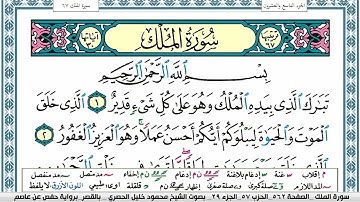 الجزء التاسع والعشرون
سورة الملك ٦٧
سُورَةُ المُلْكِ
بِسْمِ اللَّهِ الرَّحْمَٰنِ الرَّحِيمِ
تَبَارَكَ الَّذِي بِيَدِهِ الْمُلْكُ وَهُوَ عَلَىٰ كُلِّ شَيْءٍ قَدِيرٌ ١ الَّذِي خَلَقَ
الْمَوْتَ وَالْحَيَاةَ لِيَبْلُوَكُمْ أَيُّكُمْ أَحْسَنُ عَمَلًا وَهُوَ الْعَزِيزُ الْغَفُورُ ٢
سورة الملك الصفحة ٥٦٢ الحزب ٥٧ الجزء ٢٩ بصوت الشيخ محمود خليل الحصري - بالقصر برواية حفص عن عاصم